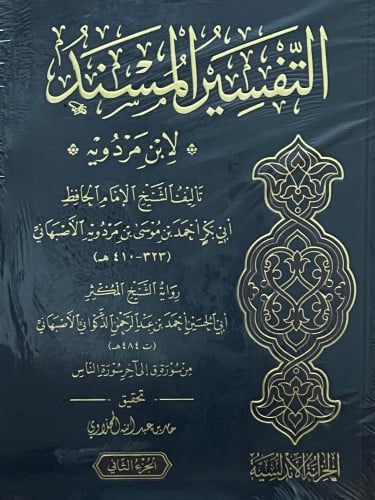 التَّفْسِيرُ المُسْنَدُ
لِابْنِ مَرْدُوَيْهِ
تَأْلِيفُ الشَّيْخِ الإِمَامِ الحَافِظِ
أَبِي بَكْرٍ أَحْمَدَ بْنِ مُوسَى بْنِ مَرْدُوَيْهِ الأَصْبَهَانِيِّ
(٣٢٣-٤١٠ هـ)
رِوَايَةُ الشَّيْخِ المُكْثِرِ
أَبِي الحُسَيْنِ أَحْمَدَ بْنِ عَبْدِ الرَّحْمَنِ الذَّكْوَانِيِّ الأَصْبَهَانِيِّ
(ت ٤٨٤ هـ)
مِنْ سُورَةِ ق إِلَى آخِرِ سُورَةِ النَّاسِ
تحقيق
حامد بن عبد الله
الجُزْءُ الثَّانِي
الخزانة الأندلسية